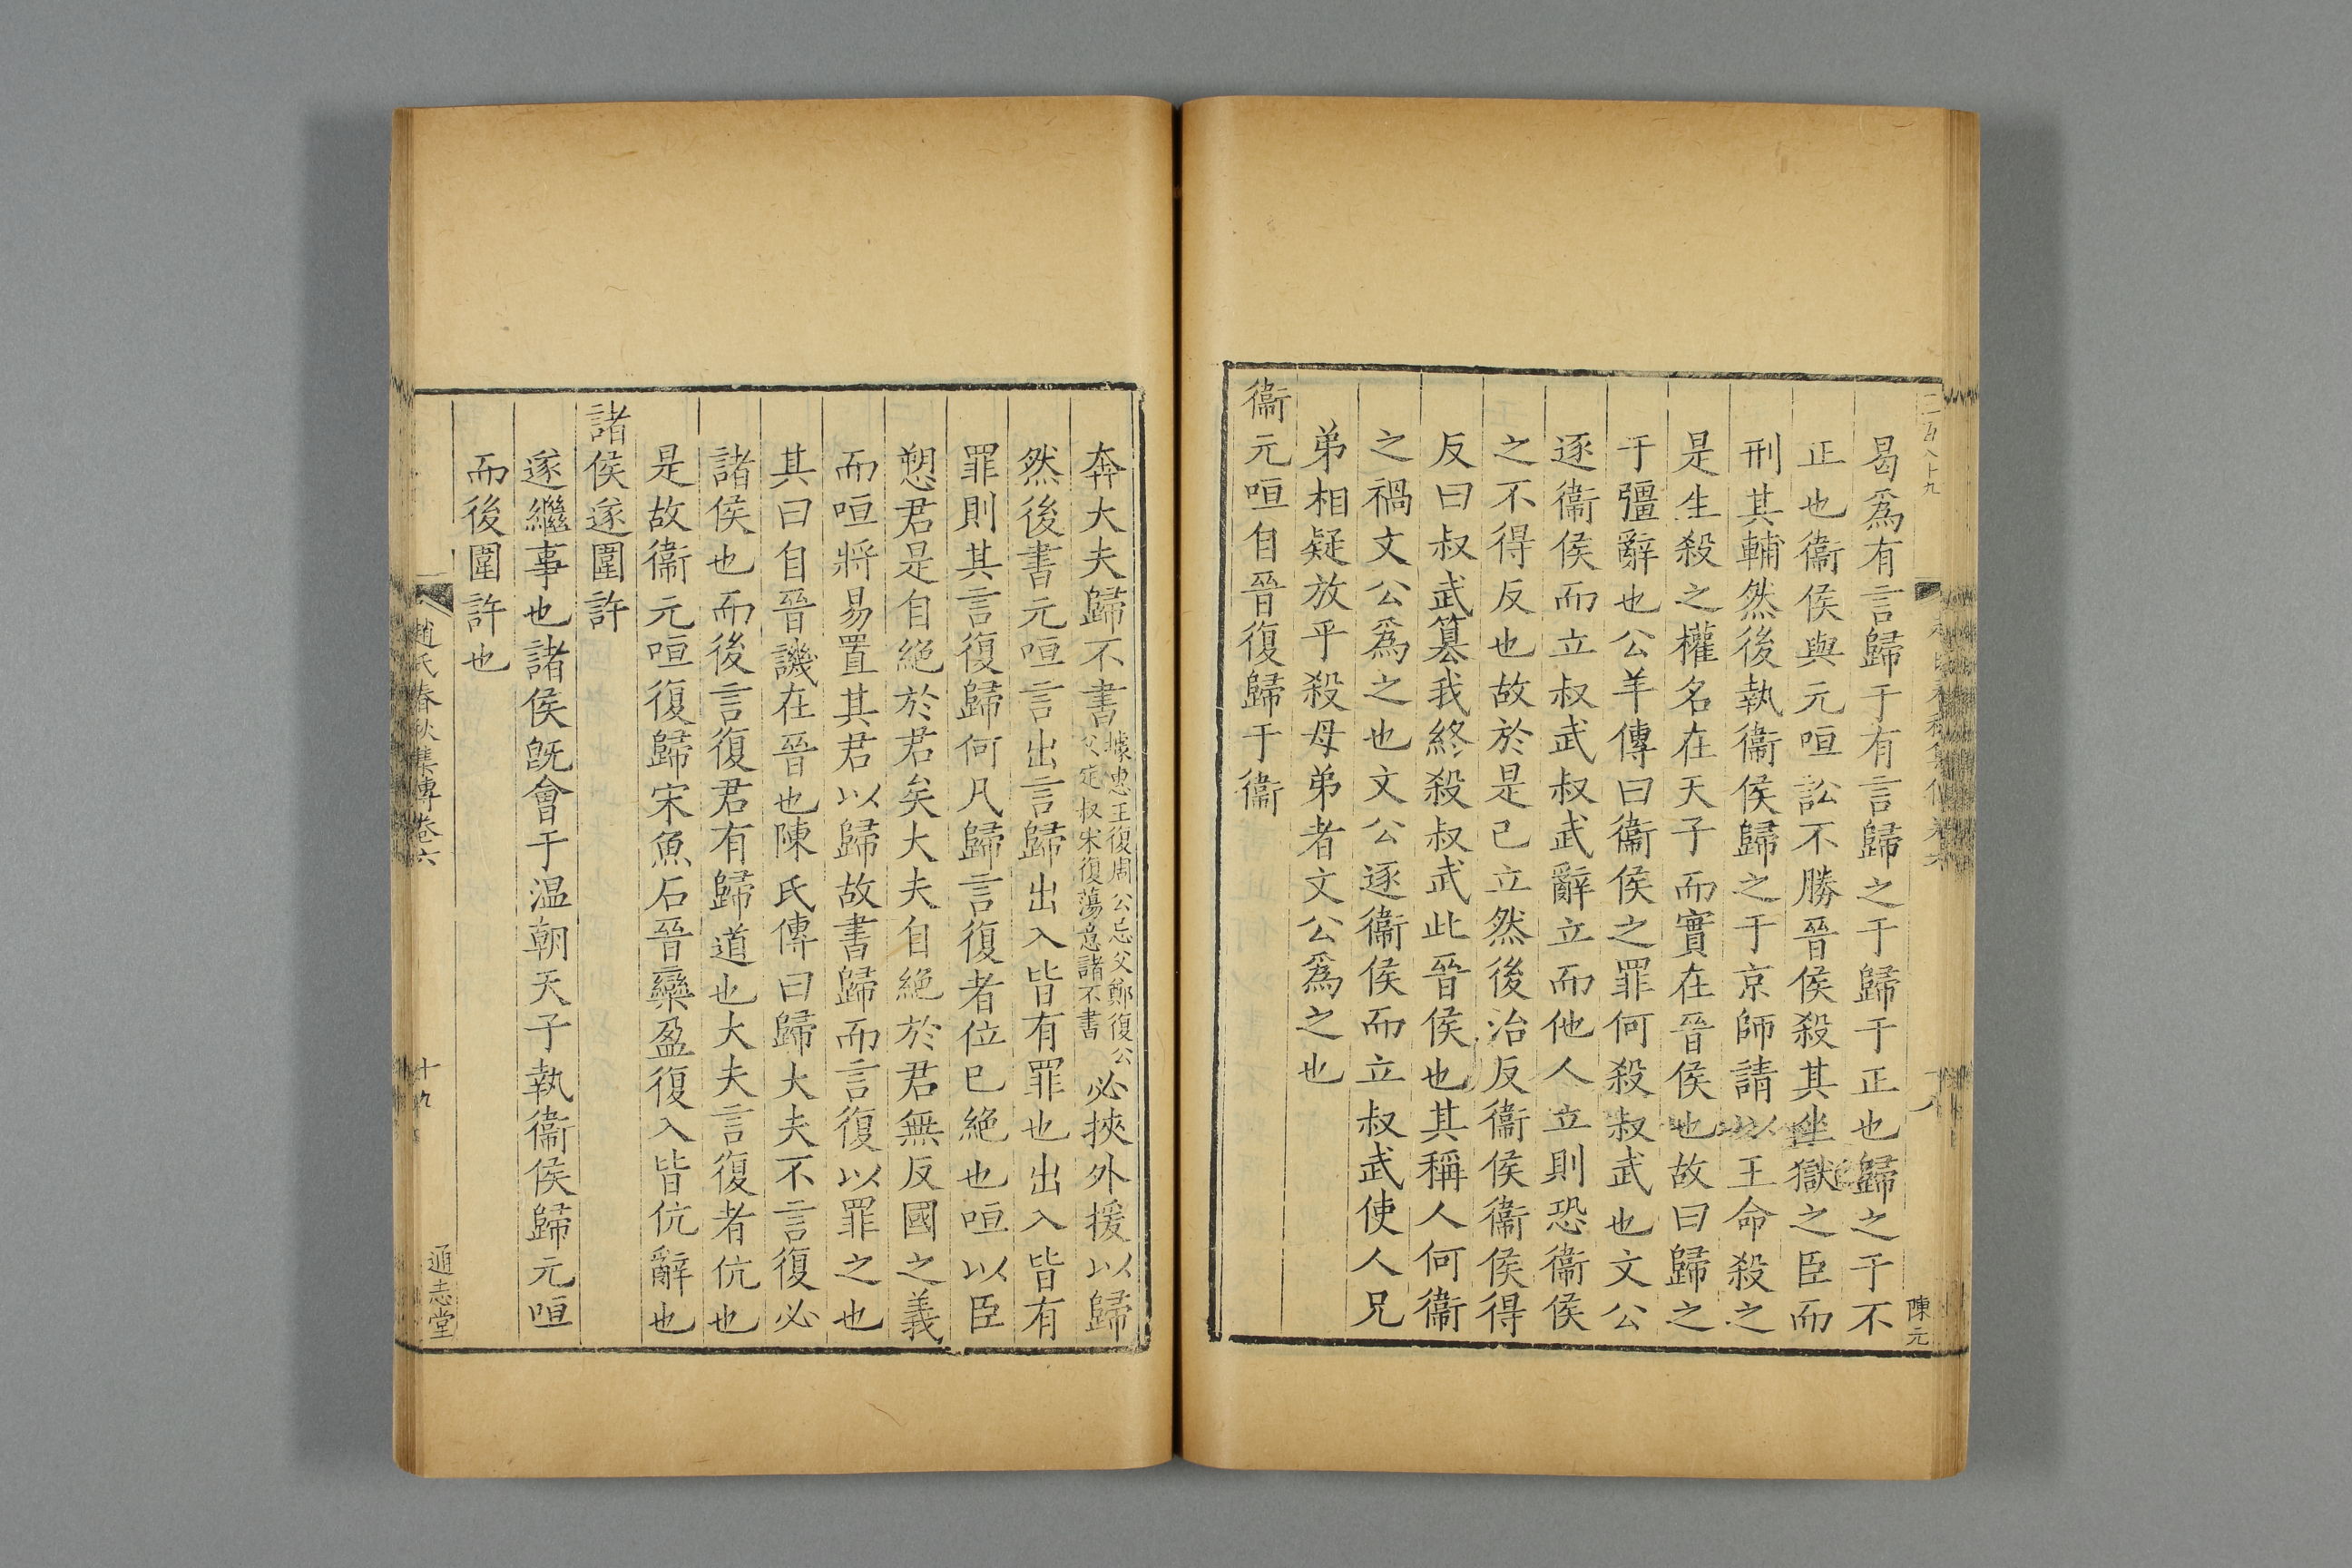 曷爲有言歸于有言歸之于歸于正也歸之于不
正也衞侯與元咺訟不勝晉侯殺其坐獄之臣而
刑其輔然後執衞侯歸之于京師請以王命殺之
是生殺之權名在天子而實在晉侯也故曰歸之
于彊辭也公羊傳曰衞侯之罪何殺叔武也文公
逐衞侯而立叔武叔武辭立而他人立則恐衞侯
之不得反也故於是已立然後治反衞侯衞侯得
反曰叔武篡我終殺叔武此晉侯也其稱人何衞
之禍文公爲之也文公逐衞侯而立叔武使人兄
弟相疑放乎殺母弟者文公爲之也
衞元咺自晉復歸于衞
陳元
奔大夫歸不書據惠王復周公忌父鄭復公父定叔宋復蕩意諸不書必挾外援以歸
然後書元咺言出言歸出入皆有罪也出入皆有
罪則其言復歸何凡歸言復者位已絶也咺以臣
愬君是自絶於君矣大夫自絶於君無反國之義
而咺將易置其君以歸故書歸而言復以罪之也
其曰自晉譏在晉也陳氏傳曰歸大夫不言復必
諸侯也而後言復君有歸道也大夫言復者伉也
是故衞元咺復歸宋魚石晉欒盈復入皆伉辭也
諸侯遂圍許
遂繼事也諸侯旣會于溫朝天子執衞侯歸元咺
而後圍許也
趙氏春秋集傳卷六
十九
通志堂